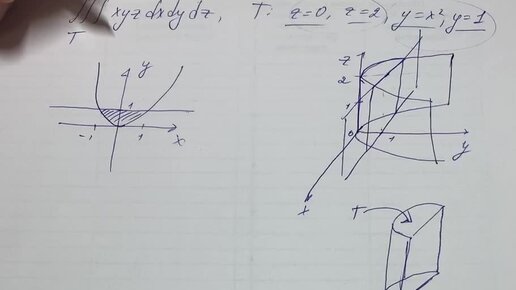 ∭ xyz dxdydz, T: z=0, z=2, y=x², y=1
T
y
1
-1 1 x
z
2
1
0 1 y
x
T